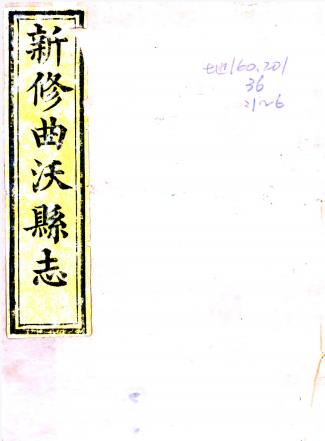 新修曲沃縣志
地160.201
36
:1~6